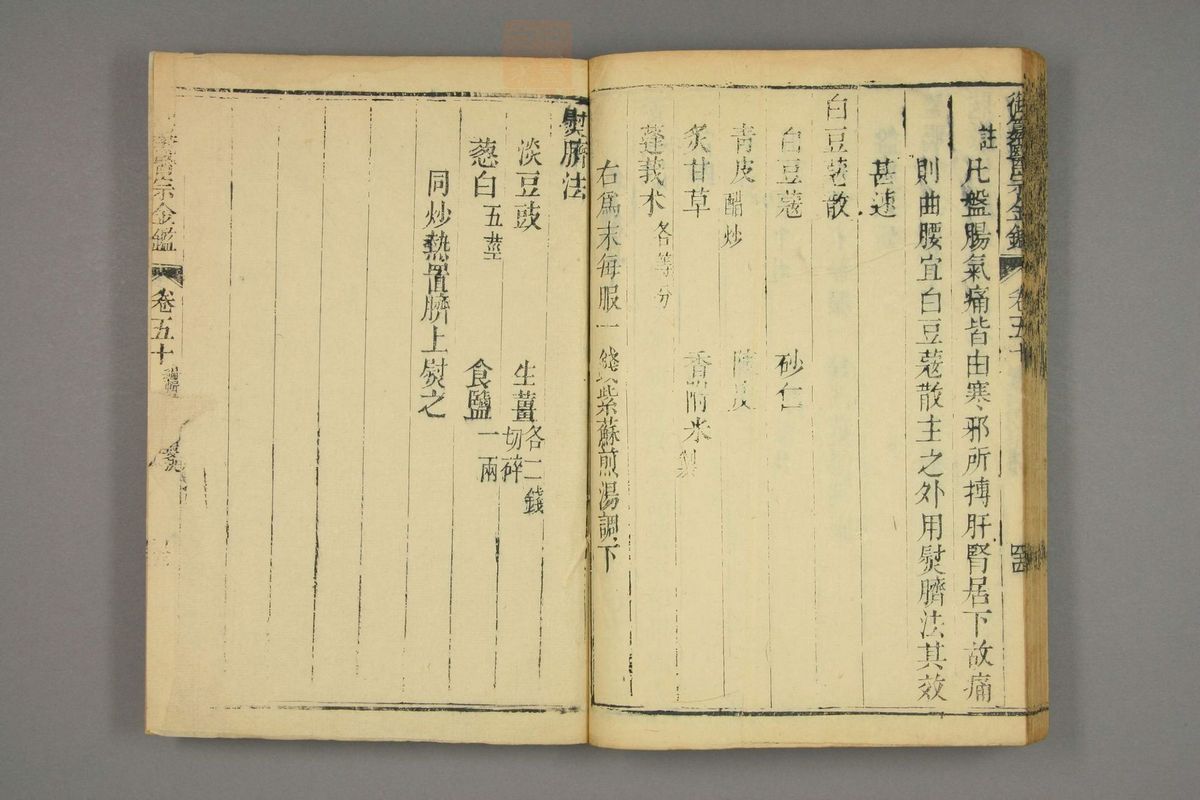 御纂醫宗金鑑 卷五十
註 凡盤腸氣痛皆由寒邪所搏肝腎居下故痛
則曲腰宜白豆蔻散主之外用熨臍法其效
甚速
白豆蔻散
白豆蔻 砂仁
青皮 醋炒 陳皮
炙甘草 香附米 製
蓬莪朮 各等分
右爲末每服一錢紫蘇煎湯調下
熨臍法
淡豆豉 生薑 切碎 各二錢
葱白 五莖 食鹽 一兩
同炒熱置臍上熨之
醫宗金鑑 卷五十